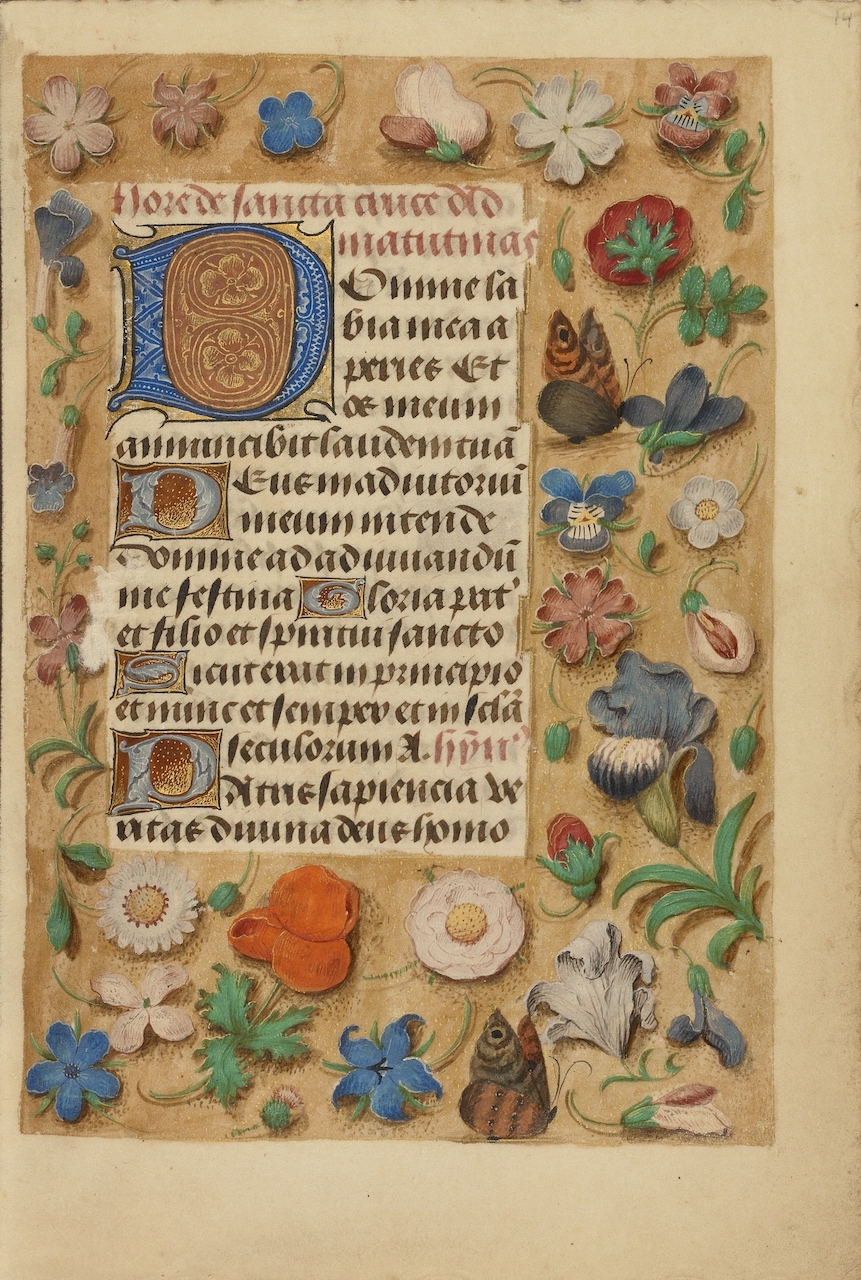 14
Hore de sancta cruce Ad
matutinas
Domine la
bia mea a
peries Et
os meum
annuncibit laudem tuā
Deus in adiutoriū
meum intende
Domine ad adiuuandū
me festina Gloria pat'
et filio et spiritui sancto
Sicut erat in principio
et nunc et semper et in sclā
seculorum A. hỹn'
Patris sapiencia ve
ritas diuina deus homo